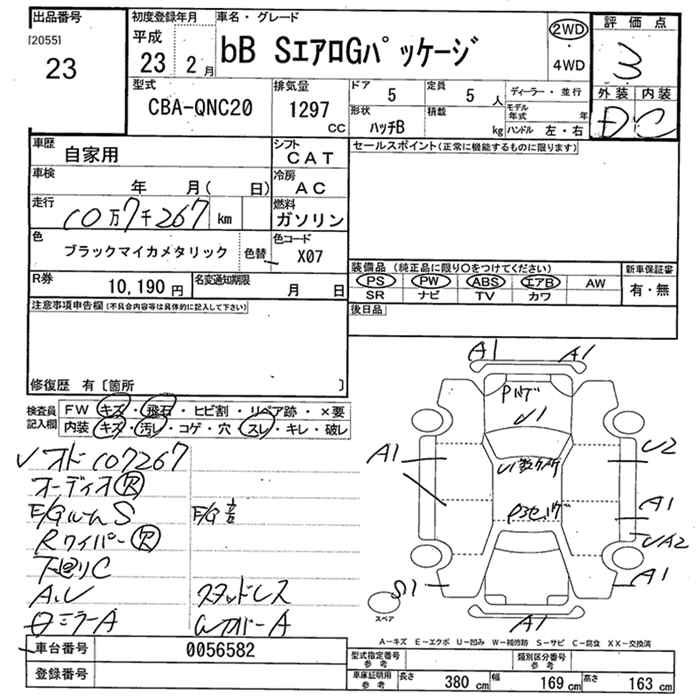 出品番号
[2055]
23
初度登録年月
平成
23 2月
車名・グレード
bB SエアロGパッケージ
2WD
・
4WD
評価点
3
外装 内装
D C
型式
CBA-QNC20
排気量
1297
CC
ドア
5
定員
5 人
形状
ハッチB
積載
kg
ディーラー・並行
モデル年式 年
ハンドル 左・右
車歴
自家用
シフト
CAT
車検
年 月( 日)
冷房
AC
走行
10万7千267 km
燃料
ガソリン
色
ブラックマイカメタリック
色替
色コード
X07
R券
10,190円
名変通知期限
月 日
セールスポイント(正常に機能するものに限ります)
装備品 (純正品に限り○をつけてください)
PS PW ABS エアB AW
SR ナビ TV カワ
新車保証書
有・無
後日品
注意事項申告欄(不具合内容等は具体的に記入して下さい)
修復歴 有〔箇所 〕
検査員記入欄
FW キズ・飛石・ヒビ割・リペア跡・×要
内装 キズ・汚レ・コゲ・穴・スレ・キレ・破レ
オド107267
オーディオR
E/GルームS
E/G
RワイパーR
下廻りC
A,U
スタッドレス
ミラーA
WカバーA
車台番号
0056582
登録番号
A1 A1
Pハゲ
U1
U1数ケ所
A1
U2
A1
UA2
A1
S1
A1
スペア
A－キズ E－エクボ U－凹み W－補修跡 S－サビ C－腐食 XX－交換済
型式指定番号
参考
類別区分番号
参考
車庫証明用
参考
長さ 380 cm
幅 169 cm
高さ 163 cm